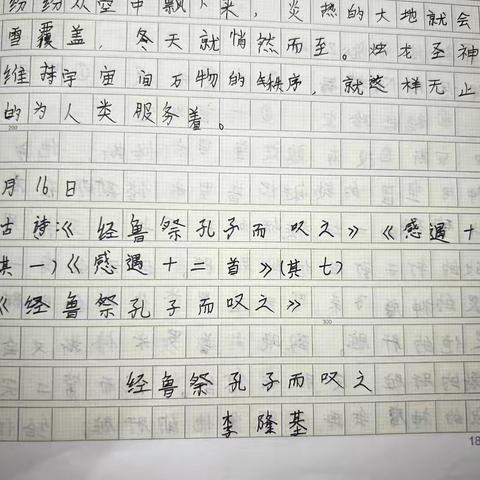 纷纷从空中飘下来，炎热的大地就会
雪覆盖，冬天就悄然而至。烛龙圣神
维持宇宙间万物的秩序，就这样无止
的为人类服务着。
200
月16日
古诗:《经鲁祭孔子而叹之》《感遇十
其一)《感遇十二首》(其七)
《经鲁祭孔子而叹之》
300
经鲁祭孔子而叹之
李隆基
18